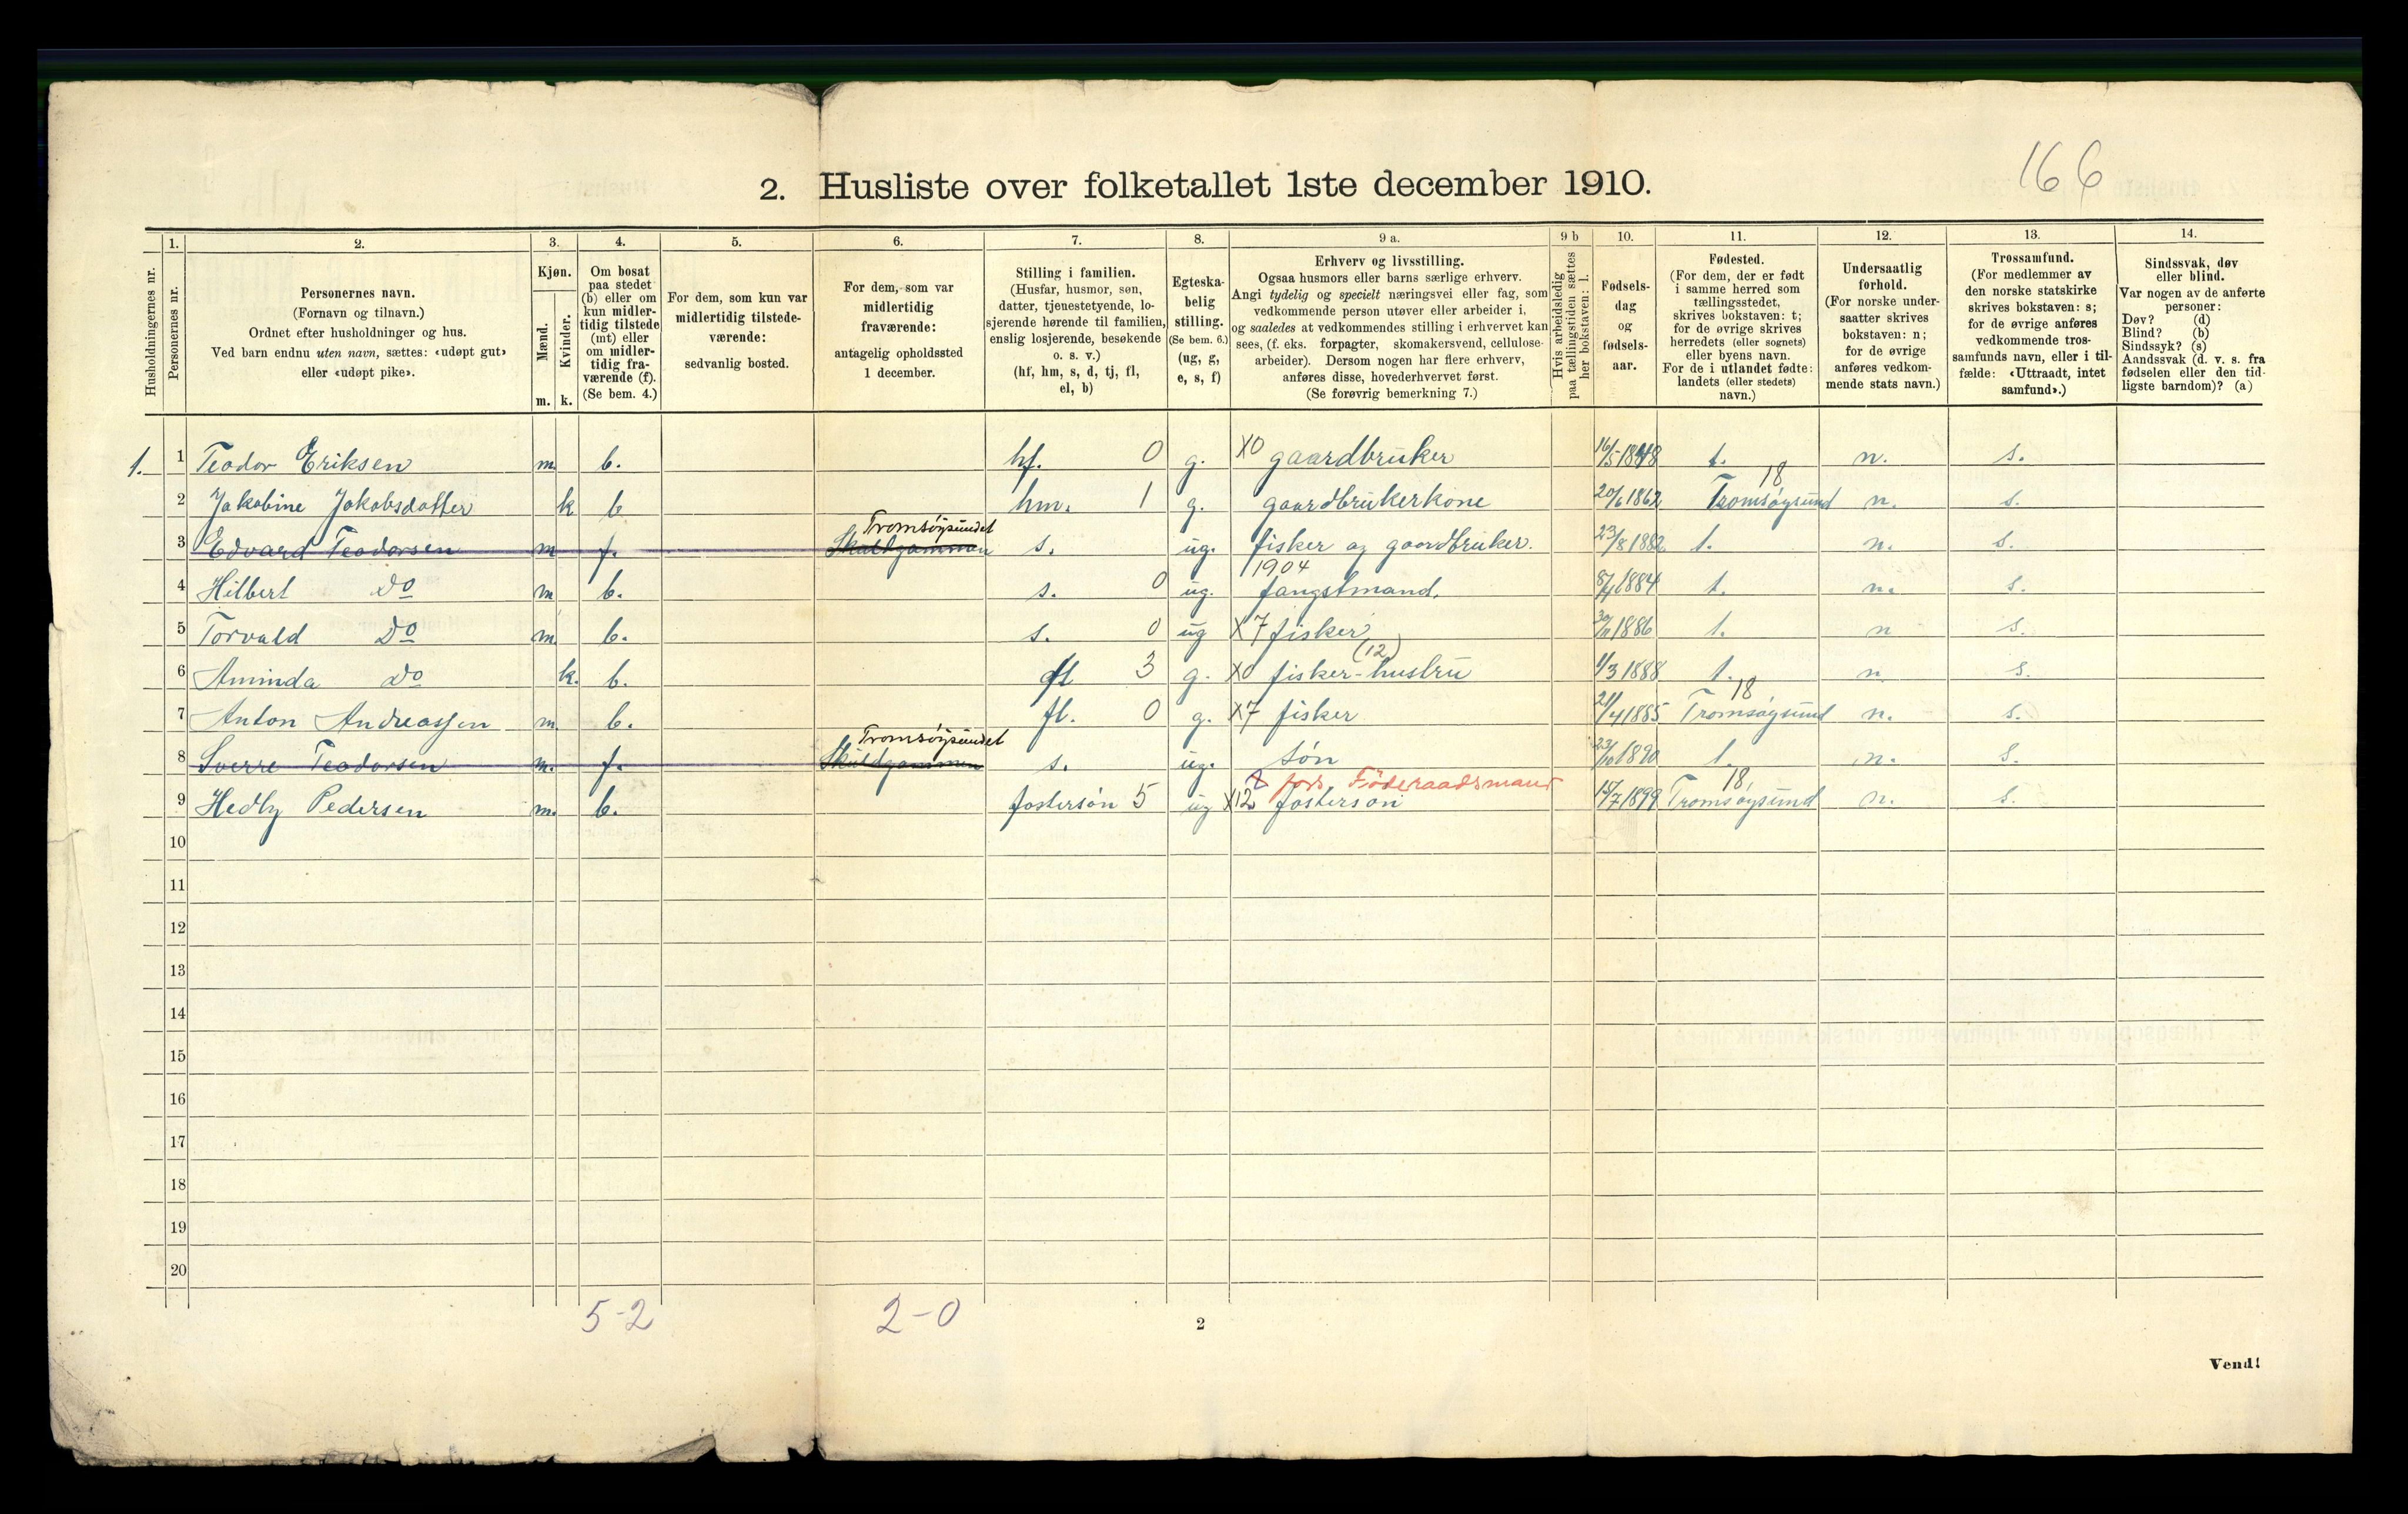 166
2. Husliste over folketallet 1ste december 1910.
Husholdningernes nr.
1. Personernes nr.
2. Personernes navn.
(Fornavn og tilnavn.)
Ordnet efter husholdninger og hus.
Ved barn endnu uten navn, sættes: «udøpt gut»
eller «udøpt pike».
3. Kjøn.
Mænd. Kvinder.
m. k.
4. Om bosat
paa stedet
(b) eller om
kun midler-
tidig tilstede
(mt) eller
om midler-
tidig fra-
værende (f).
(Se bem. 4.)
5. For dem, som kun var
midlertidig tilstede-
værende:
sedvanlig bosted.
6. For dem, som var
midlertidig
fraværende:
antagelig opholdssted
1 december.
7. Stilling i familien.
(Husfar, husmor, søn,
datter, tjenestetyende, lo-
sjerende hørende til familien,
enslig losjerende, besøkende
o. s. v.)
(hf, hm, s, d, tj, fl,
el, b)
8. Egteska-
belig
stilling.
(Se bem. 6.)
(ug, g,
e, s, f)
9 a. Erhverv og livsstilling.
Ogsaa husmors eller barns særlige erhverv.
Angi tydelig og specielt næringsvei eller fag, som
vedkommende person utøver eller arbeider i,
og saaledes at vedkommendes stilling i erhvervet kan
sees, (f. eks. forpagter, skomakersvend, cellulose-
arbeider). Dersom nogen har flere erhverv,
anføres disse, hovederhvervet først.
(Se forøvrig bemerkning 7.)
9 b Hvis arbeidsledig
paa tællingstiden sættes
her bokstaven: l.
10. Fødsels-
dag
og
fødsels-
aar.
11. Fødested.
(For dem, der er født
i samme herred som
tællingsstedet,
skrives bokstaven: t;
for de øvrige skrives
herredets (eller sognets)
eller byens navn.
For de i utlandet fødte:
landets (eller stedets)
navn.)
12. Undersaatlig
forhold.
(For norske under-
saatter skrives
bokstaven: n;
for de øvrige
anføres vedkom-
mende stats navn.)
13. Trossamfund.
(For medlemmer av
den norske statskirke
skrives bokstaven: s;
for de øvrige anføres
vedkommende tros-
samfunds navn, eller i til-
fælde: «Uttraadt, intet
samfund».)
14. Sindssvak, døv
eller blind.
Var nogen av de anførte
personer:
Døv? (d)
Blind? (b)
Sindssyk? (s)
Aandssvak (d. v. s. fra
fødselen eller den tid-
ligste barndom)? (a)
1. 1 Teodor Eriksen m. b. hf. 0 g. X0 gaardbruker 16/5 1848 t. n. s.
18
2 Jakobine Jakobsdatter k b hm. 1 g. gaardbrukerkone 20/6 1862 Tromsøysund n. s.
Tromsøysundet
3 Edvard Teodorsen m f. Skuldgammen s. ug. fisker og gaardbruker. 23/8 1882 t. n. s.
1904
4 Hilbert Do m b. s. 0 ug. fangstmand. 1884 t. n. s.
5 Torvald Do m. b. s. 0 ug X7 fisker 1886 t. n s.
(12)
6 Aminda Do k. b. fl 3 g. X0 fisker-hustru 1/3 1888 t. n. s.
18
7 Anton Andreassen m. b. fl. 0 g. X7 fisker 21/4 1885 Tromsøysund n. s.
Tromsøysundet
8 Sverre Teodorsen m. f. Skuldgammen s. ug. søn 23/10 1890 t. n. s.
fors. Föderaadsmand 18.
9 Hedly Pedersen m. b. fostersøn 5 ug X12 fostersøn 15/7 1899 Tromsøysund n. s.
10
11
12
13
14
15
16
17
18
19
20
5-2 2-0
2
Vend!